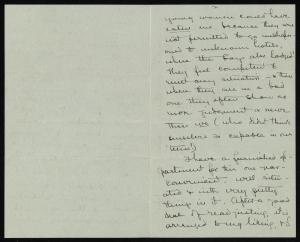 young women could have
eaten me because they were
not permitted to go unchaper-
oned to unknown hotels,
where the boys also lodged
they feel competent to
meet any situation – & then
when they are in a bad
one they often show no
more judgment & nerve
than we (who didn't think
ourselves so capable in our
teens!)
I have a furnished a-
partment for this one year
convenient, well situ-
ated & with very pretty
things in it. After a good
deal of readjusting, it is
arranged to my liking, & I